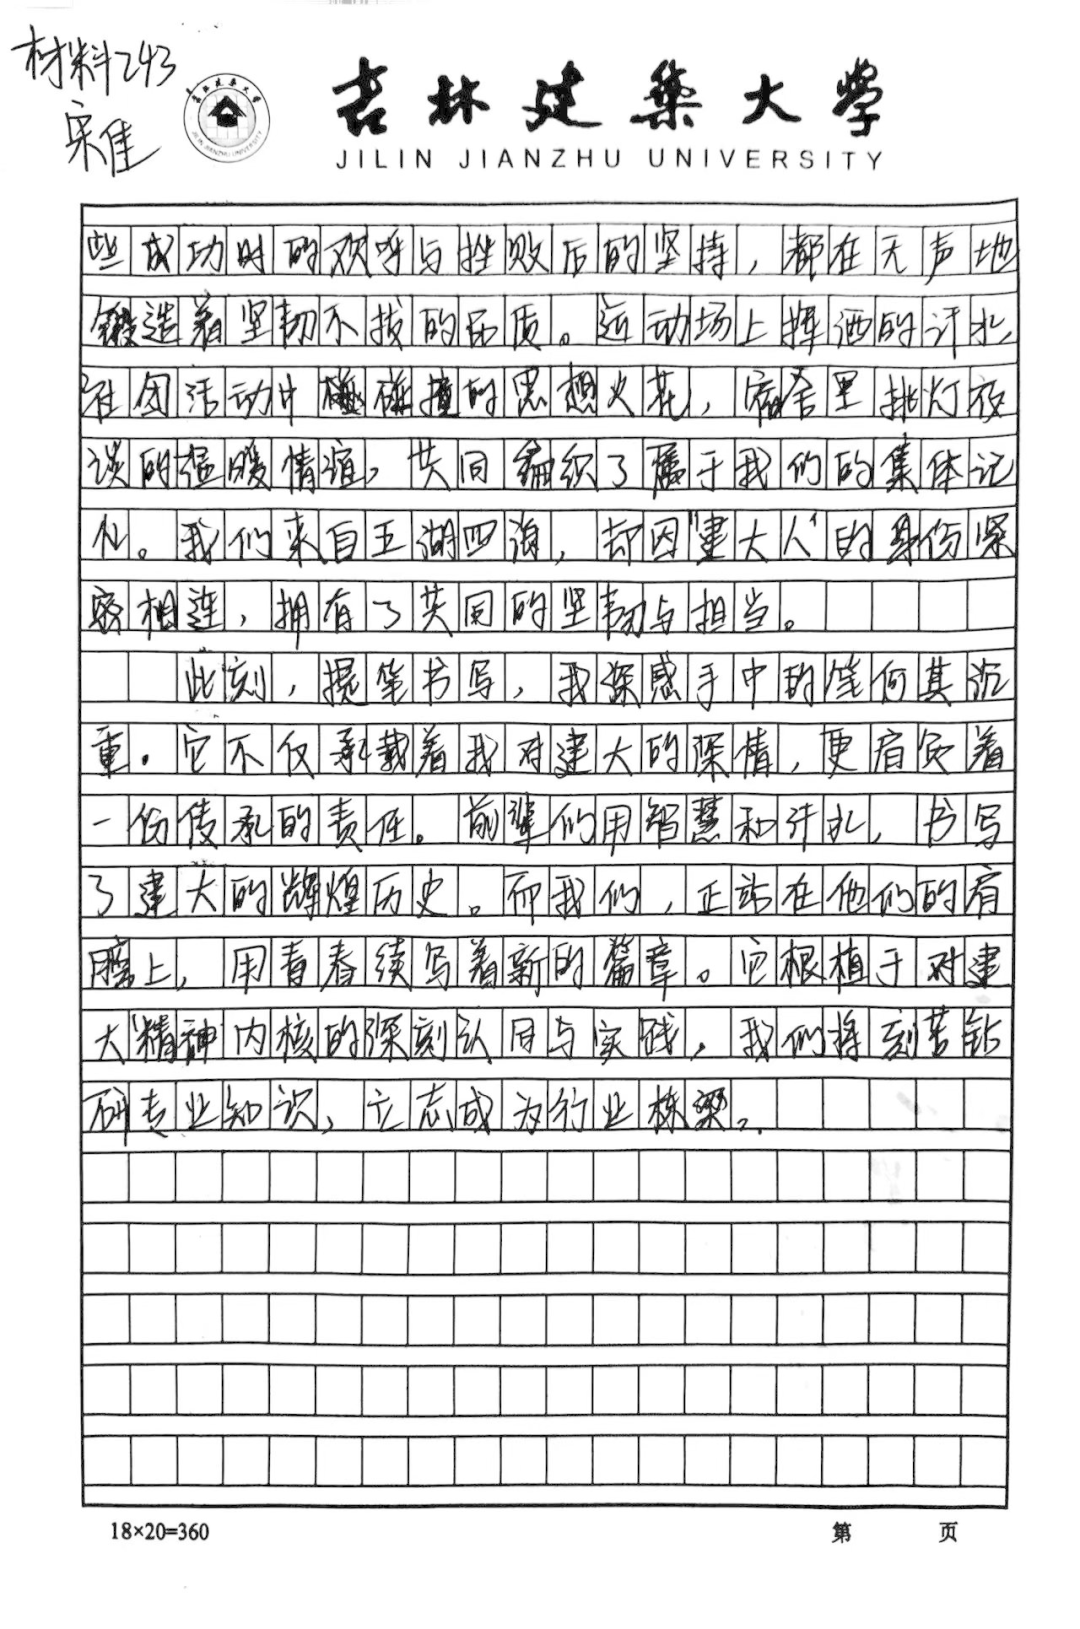 材料243
宋佳
吉林建筑大学
JILIN JIANZHU UNIVERSITY
些成功时的欢呼与挫败后的坚持，都在无声地
锻造着坚韧不拔的品质。运动场上挥洒的汗水，
社团活动中碰撞的思想火花，宿舍里挑灯夜
谈的温暖情谊，共同编织了属于我们的集体记
忆。我们来自五湖四海，却因“建大人”的身份紧
密相连，拥有了共同的坚韧与担当。
此刻，提笔书写，我深感手中的笔何其沉
重。它不仅承载着我对建大的深情，更肩负着
一份传承的责任。前辈们用智慧和汗水，书写
了建大的辉煌历史。而我们，正站在他们的肩
膀上，用青春续写着新的篇章。它根植于对建
大精神内核的深刻认同与实践，我们将刻苦钻
研专业知识，立志成为行业栋梁。
18×20=360
第 页